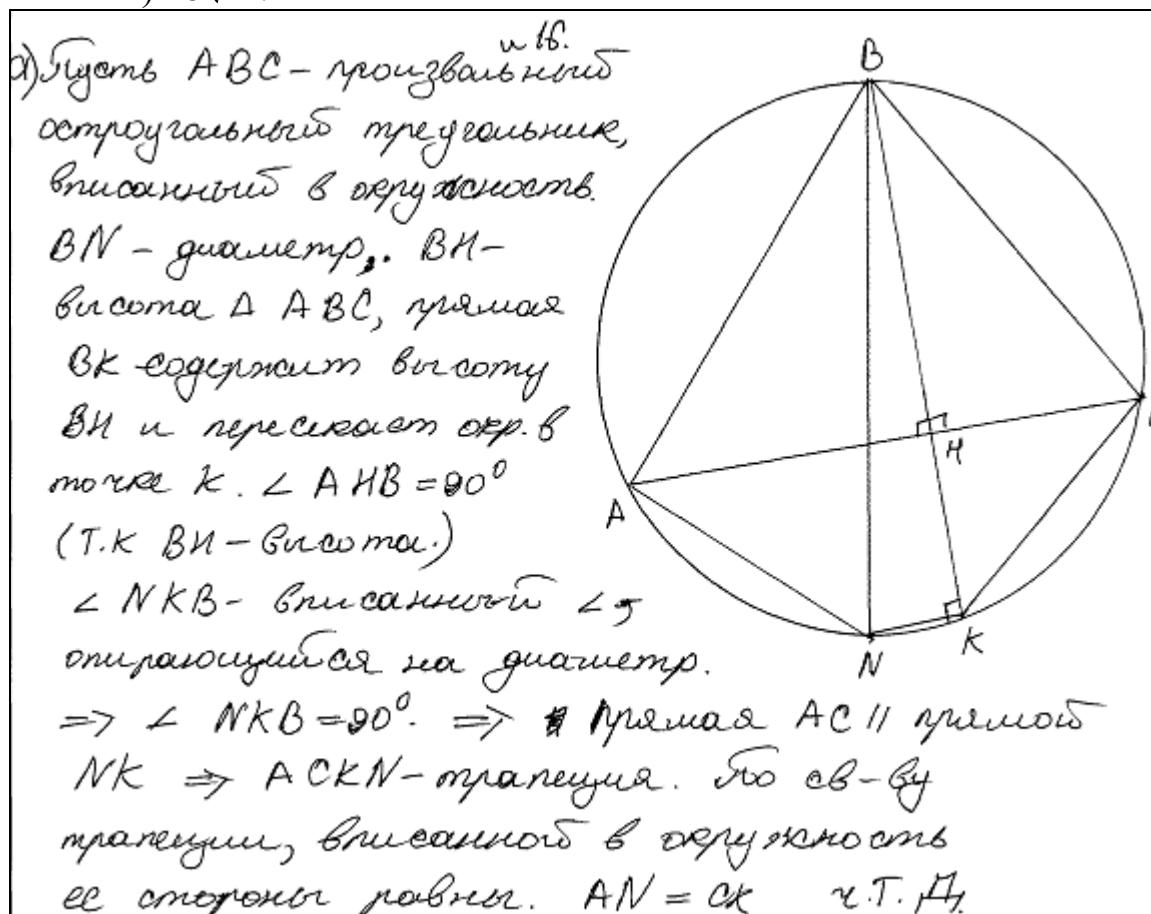 н 16.
а) Пусть ABC – произвольный
остроугольный треугольник,
вписанный в окружность.
BN – диаметр,. BH –
высота Δ ABC, прямая
BK содержит высоту
BH и пересекает окр. в
точке K. ∠ AHB = 90°
(Т.К BH – высота.)
∠ NKB – вписанный ∠,
опирающийся на диаметр.
=> ∠ NKB = 90°. => прямая AC || прямой
NK => ACKN – трапеция. По св-ву
трапеции, вписанной в окружность
ее стороны равны. AN = CK ч.Т.Д.
B
H
A
N
K